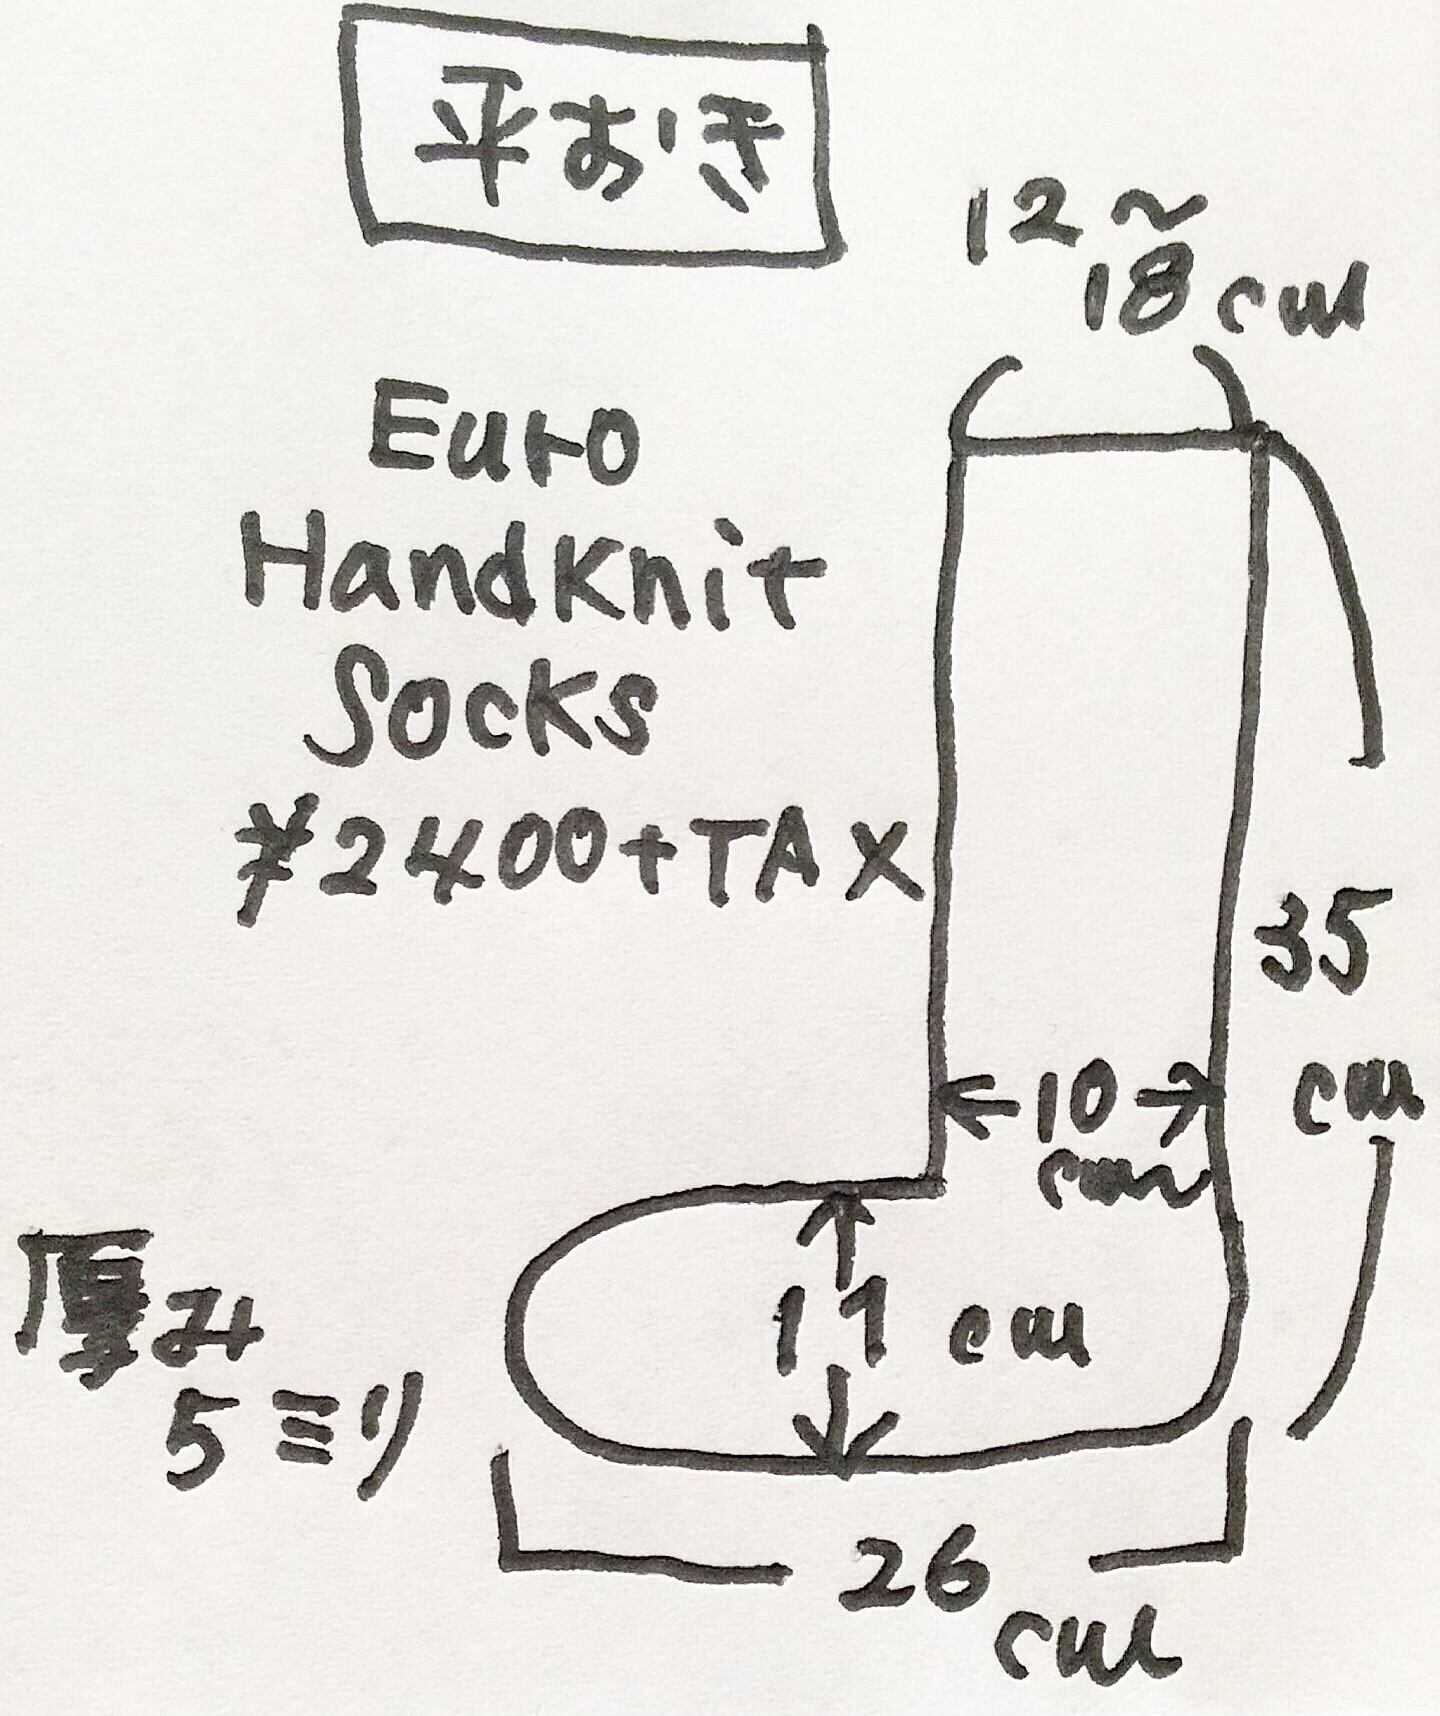 平おき
12〜
18cm
Euro
HandKnit
Socks
¥2400+TAX
35
cm
10
cm
11cm
厚み
5ミリ
26
cm